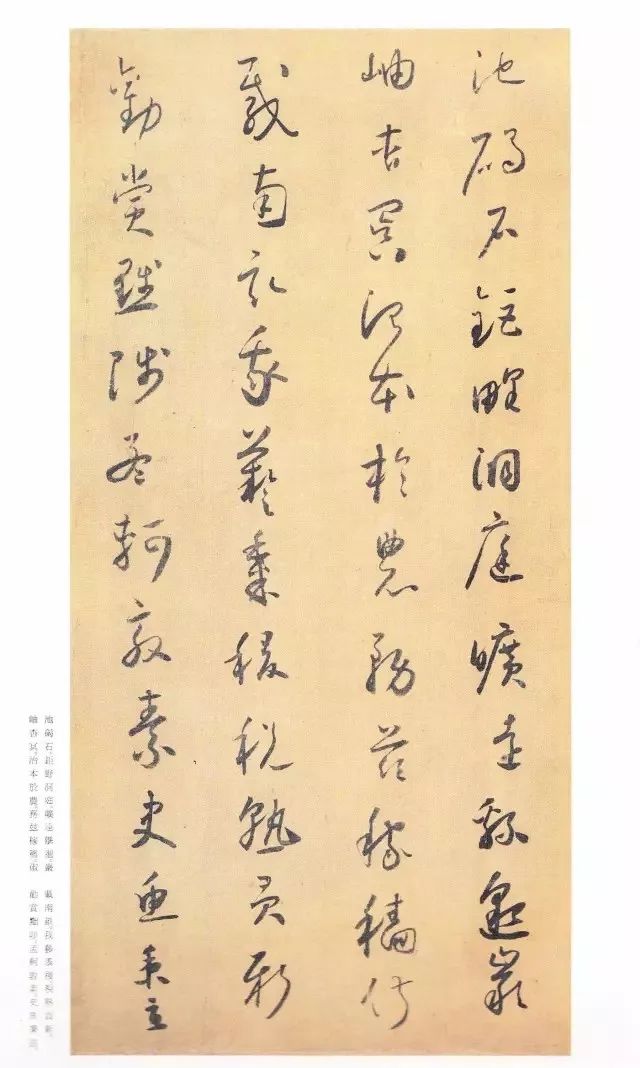 池碣石鉅野洞庭曠遠緜邈巖
岫杳冥治本於農務茲稼穡俶
載南畝我藝黍稷稅熟貢新
勸賞黜陟孟軻敦素史魚秉直
池碣石。鉅野洞庭。曠遠緜邈。巖
岫杳冥。治本於農。務茲稼穡。俶
載南畝。我藝黍稷。稅熟貢新。
勸賞黜陟。孟軻敦素。史魚秉直。